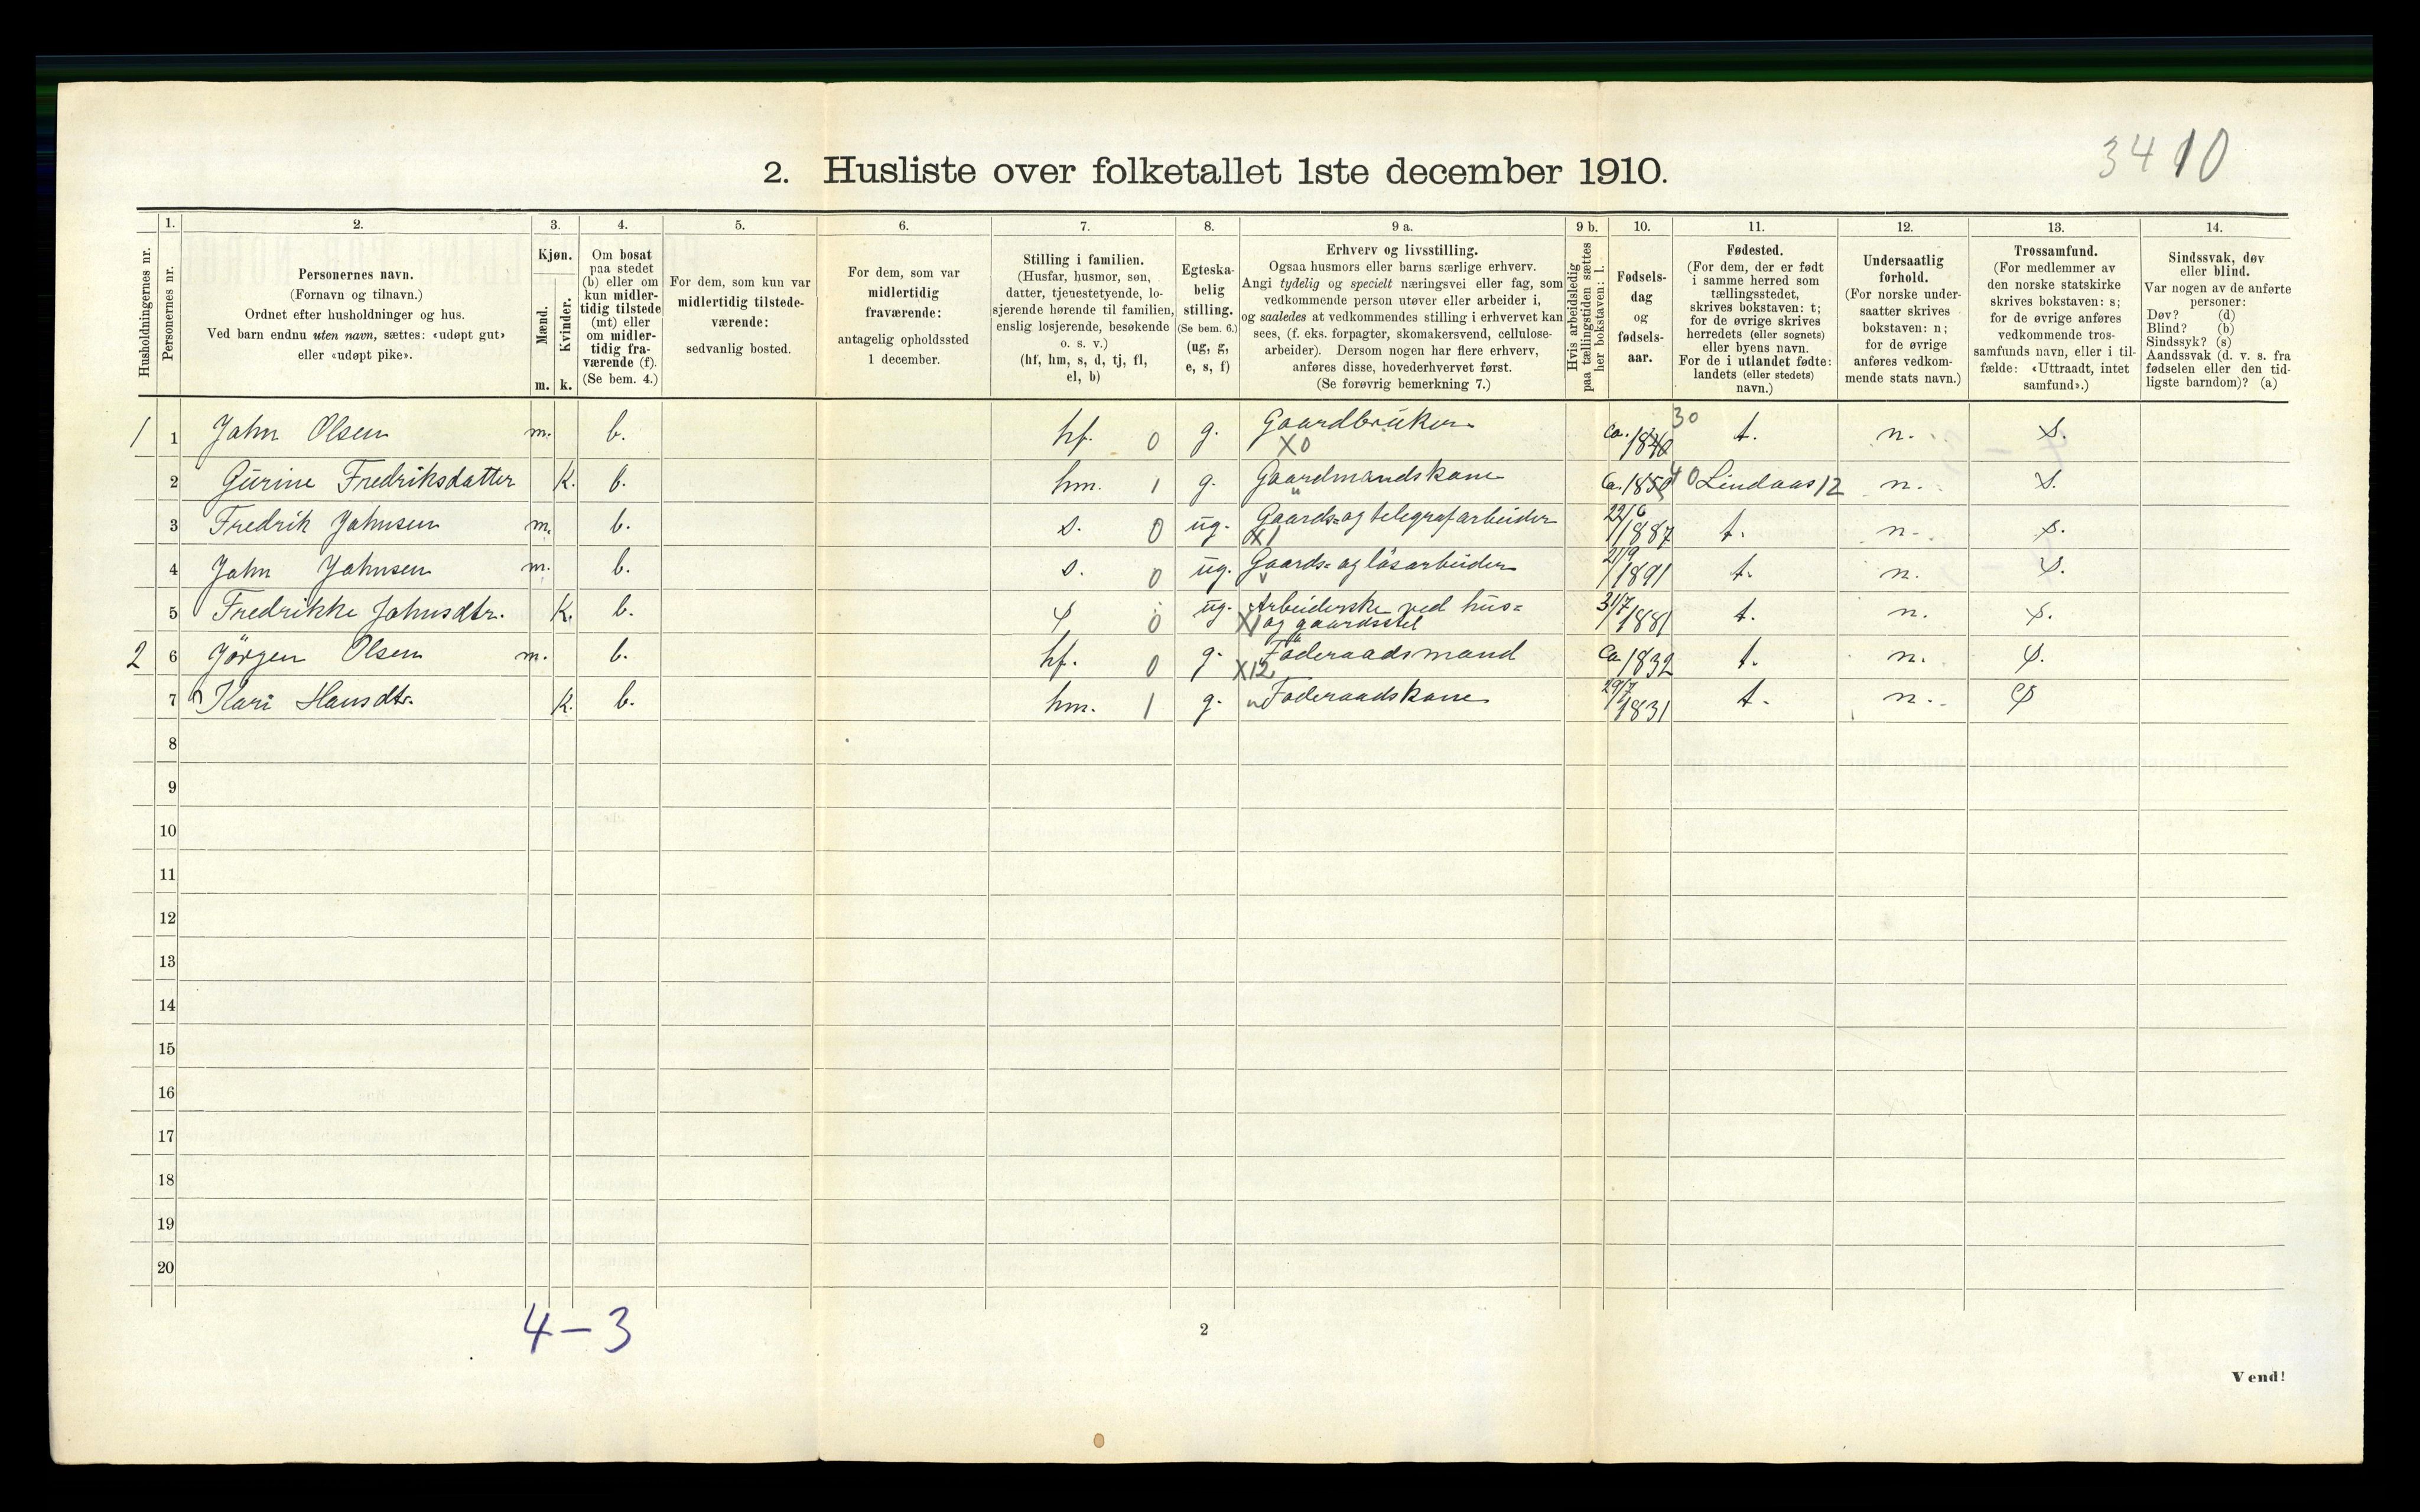 3410
2. Husliste over folketallet 1ste december 1910.
Husholdningernes nr.
1.
Personernes nr.
2.
Personernes navn.
(Fornavn og tilnavn.)
Ordnet efter husholdninger og hus.
Ved barn endnu uten navn, sættes: «udøpt gut»
eller «udøpt pike».
3.
Kjøn.
Mænd.
Kvinder.
m. k.
4.
Om bosat
paa stedet
(b) eller om
kun midler-
tidig tilstede
(mt) eller
om midler-
tidig fra-
værende (f).
(Se bem. 4.)
5.
For dem, som kun var
midlertidig tilstede-
værende:
sedvanlig bosted.
6.
For dem, som var
midlertidig
fraværende:
antagelig opholdssted
1 december.
7.
Stilling i familien.
(Husfar, husmor, søn,
datter, tjenestetyende, lo-
sjerende hørende til familien,
enslig losjerende, besøkende
o. s. v.)
(hf, hm, s, d, tj, fl,
el, b)
8.
Egteska-
belig
stilling.
(Se bem. 6.)
(ug, g,
e, s, f)
9 a.
Erhverv og livsstilling.
Ogsaa husmors eller barns særlige erhverv.
Angi tydelig og specielt næringsvei eller fag, som
vedkommende person utøver eller arbeider i,
og saaledes at vedkommendes stilling i erhvervet kan
sees, (f. eks. forpagter, skomakersvend, cellulose-
arbeider). Dersom nogen har flere erhverv,
anføres disse, hovederhvervet først.
(Se forøvrig bemerkning 7.)
9 b.
Hvis arbeidsledig
paa tællingstiden sættes
her bokstaven: l.
10.
Fødsels-
dag
og
fødsels-
aar.
11.
Fødested.
(For dem, der er født
i samme herred som
tællingsstedet,
skrives bokstaven: t;
for de øvrige skrives
herredets (eller sognets)
eller byens navn.
For de i utlandet fødte:
landets (eller stedets)
navn.)
12.
Undersaatlig
forhold.
(For norske under-
saatter skrives
bokstaven: n;
for de øvrige
anføres vedkom-
mende stats navn.)
13.
Trossamfund.
(For medlemmer av
den norske statskirke
skrives bokstaven: s;
for de øvrige anføres
vedkommende tros-
samfunds navn, eller i til-
fælde: «Uttraadt, intet
samfund».)
14.
Sindssvak, døv
eller blind.
Var nogen av de anførte
personer:
Døv? (d)
Blind? (b)
Sindssyk? (s)
Aandssvak (d. v. s. fra
fødselen eller den tid-
ligste barndom)? (a)
1 1 Jahn Olsen m. b. hf. 0 g. Gaardbruker X0 ca. 1840 30 t. n. s.
2 Gurine Fredriksdatter K. b. hm. 1 g. Gaardmandskone " Ca. 1850 40 Lindaas 12 n. s.
3 Fredrik Jahnsen m. b. s. 0 ug. Gaards= og telegrafarbeider X1 22/6 1887 t. n. s.
4 Jahn Jahnsen m. b. s. 0 ug. Gaards= og løsarbeider 21/9 1891 t. n. s.
5 Fredrikke Jahnsdtr. K. b. 0 ug. Arbeiderske ved hus=
og gaardsstel X1 31/7 1881 t. n. s.
2 6 Jörgen Olsen m. b. hf. 0 g. Föderaadsmand X12 Ca. 1832 t. n. s.
7 Kari Hansdtr. K. b. hm. 1 g. " Föderaadskone 29/7 1831 t. n. s
8
9
10
11
12
13
14
15
16
17
18
19
20
4-3
2
Vend!